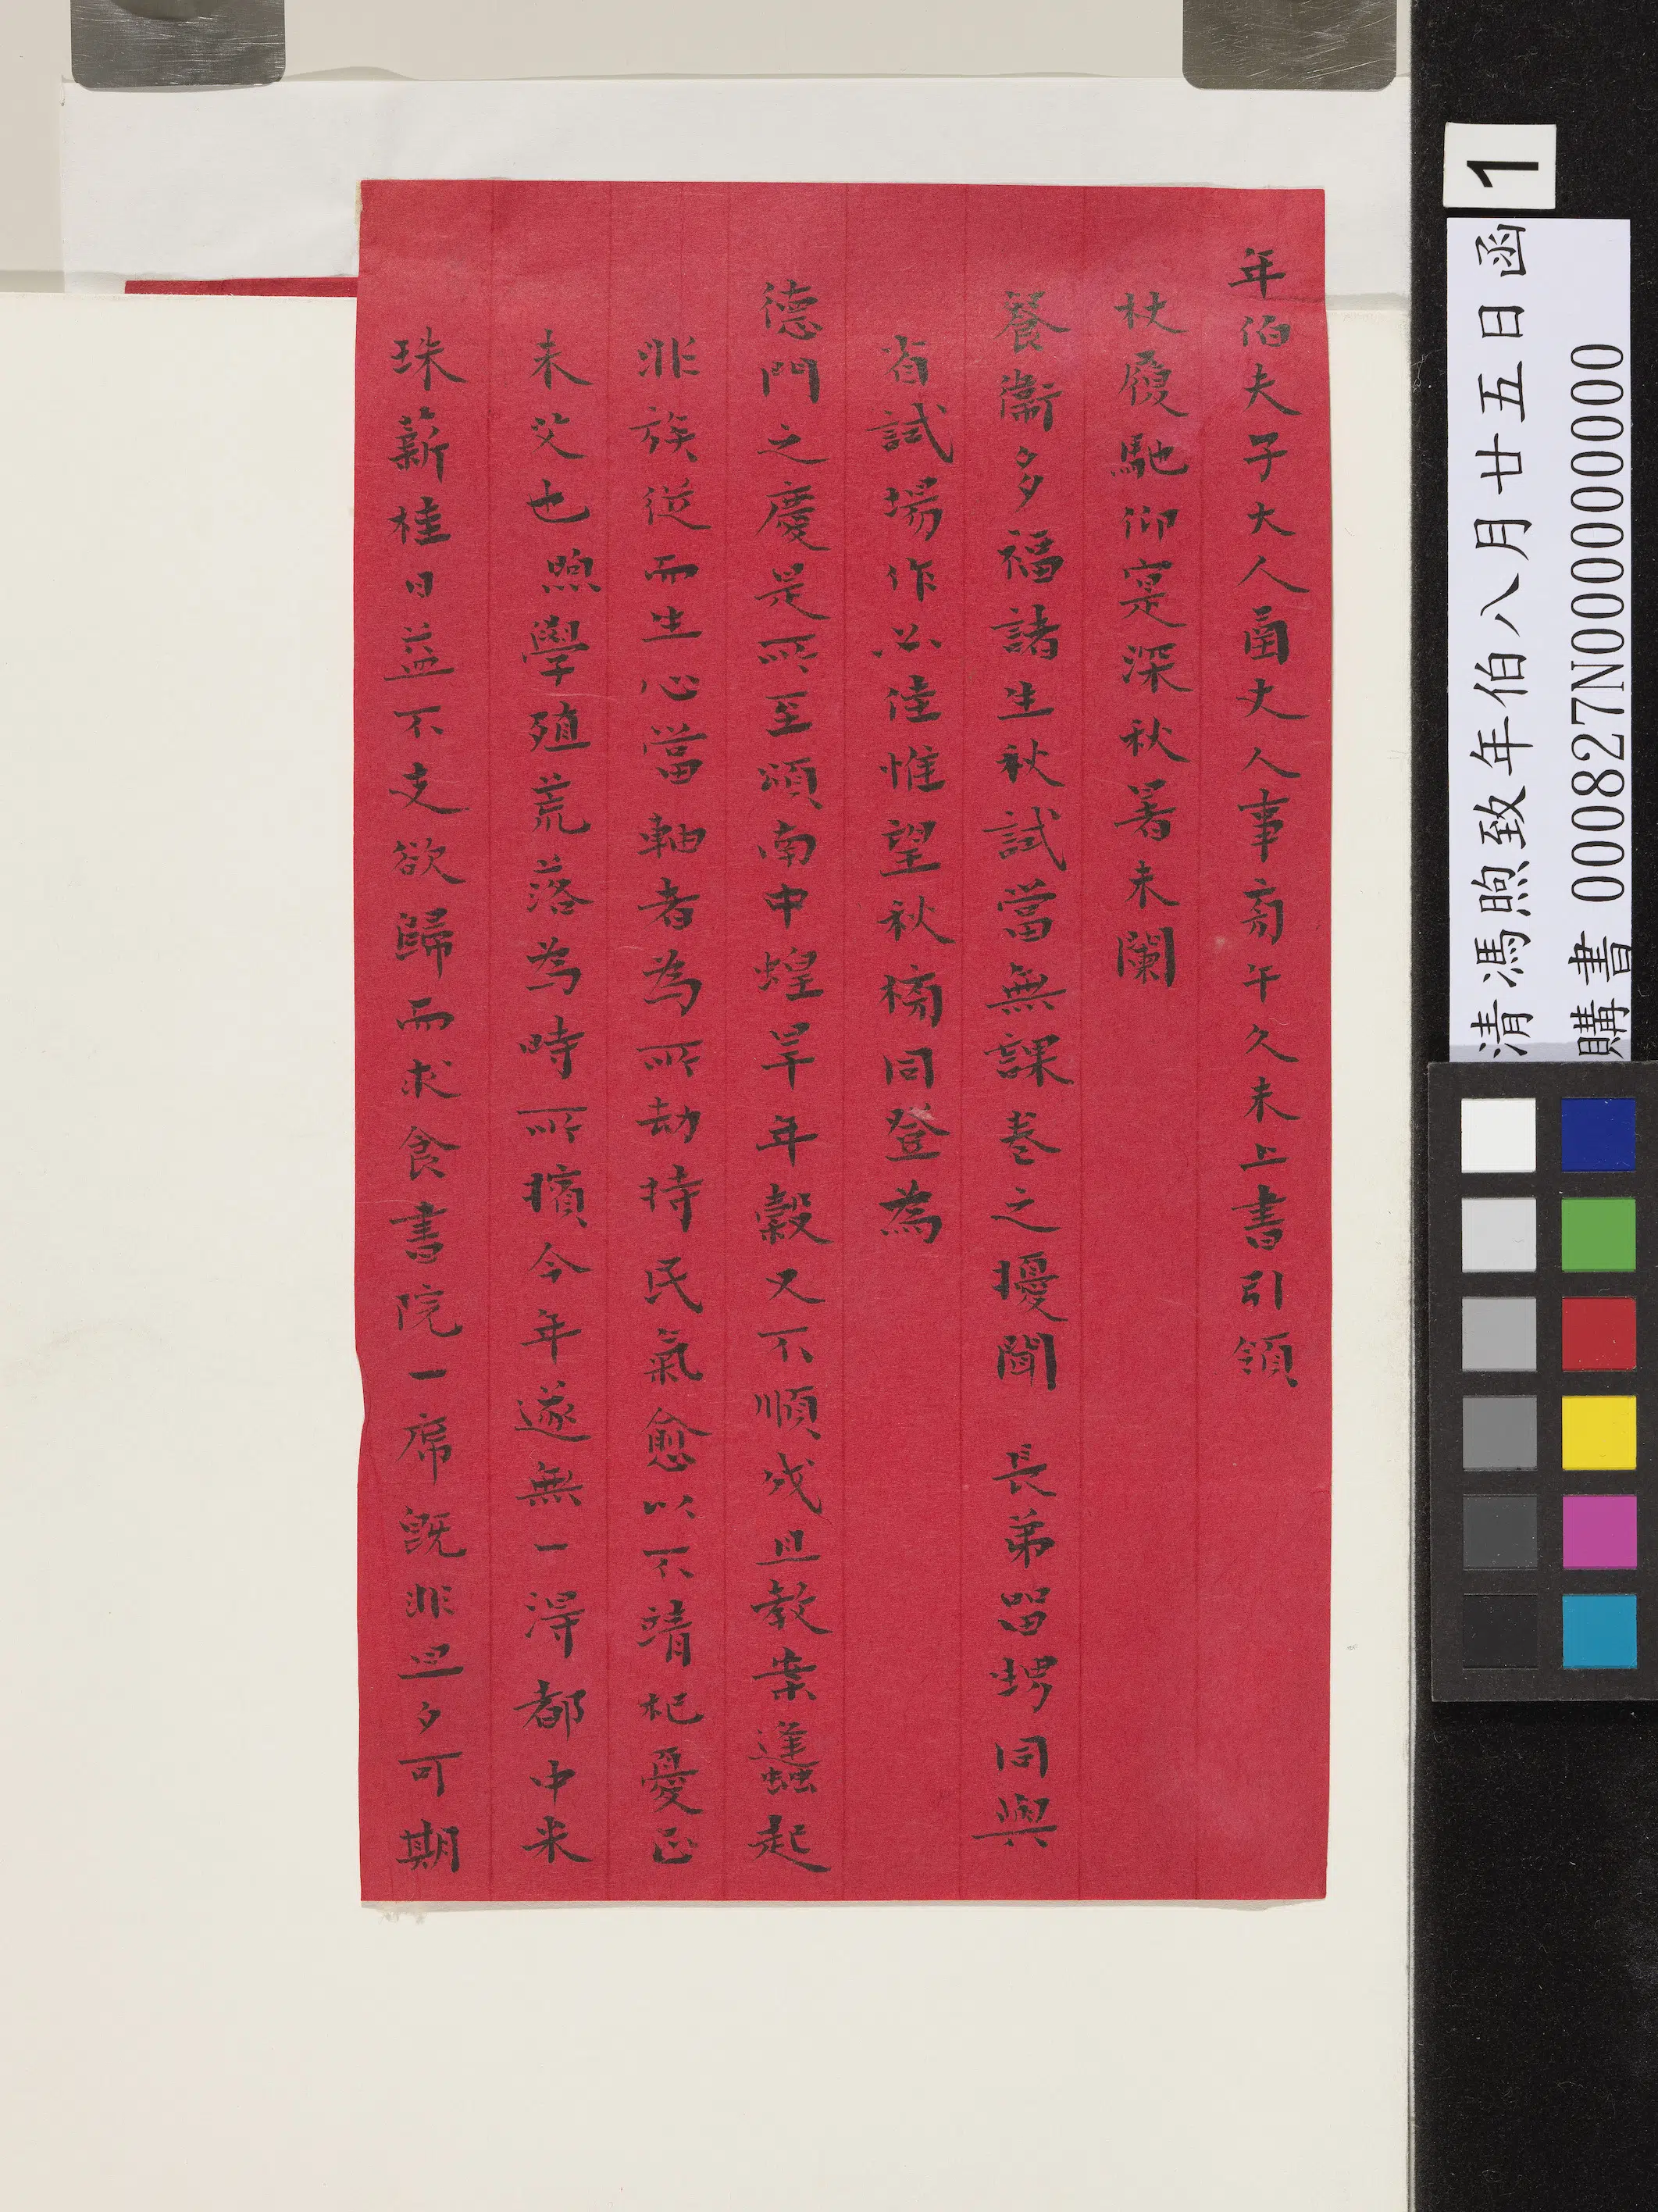 年伯夫子大人函丈人事旁午久未上書引領
杖履馳仰寔深秋暑未闌
餐衛多福諸生秋試當無課卷之擾聞 長弟留甥同與
省試場作必佳惟望秋榜同登為
德門之慶是所至頌南中蝗旱年穀又不順成且教案蠭起
非族從而生心當軸者為所劫持民氣愈以不靖杞憂正
未艾也煦學殖荒落為時所擯今年遂無一得都中米
珠薪桂日益不支欲歸而求食書院一席既非旦夕可期
1
清馮煦致年伯八月廿五日函
購書 000827N000000000